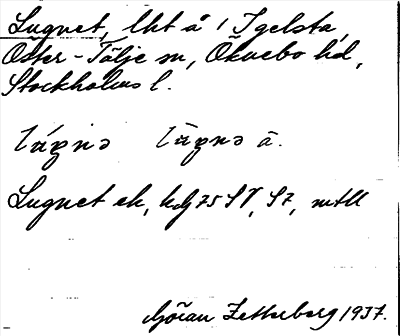 Lugnet, lht å 1 Igelsta,
Öster-Tälje sn, Öknebo hd,
Stockholms l.
lúgnə lūgnə ā.
Lugnet ek, kdj 75 SV, S7, mtll
Göran Zetterberg 1937.